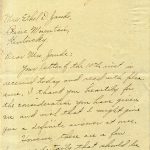 Mrs. Ethel D. Jande,
Pine Mountain,
Kentucky.
Dear Mrs. Jande:
Your letter of the 10th inst. is
received today and read with pleas-
ure. I thank you heartily for
the consideration you have given
me and wish that I might give
you a definite answer at once.
However there are a few
details that should be